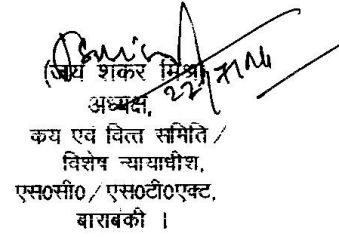 (जय शंकर मिश्रा)
22/7/14
अध्यक्ष,
कय एवं वित्त समिति /
विशेष न्यायाधीश,
एस0सी0 / एस0टी0एक्ट,
बाराबंकी ।